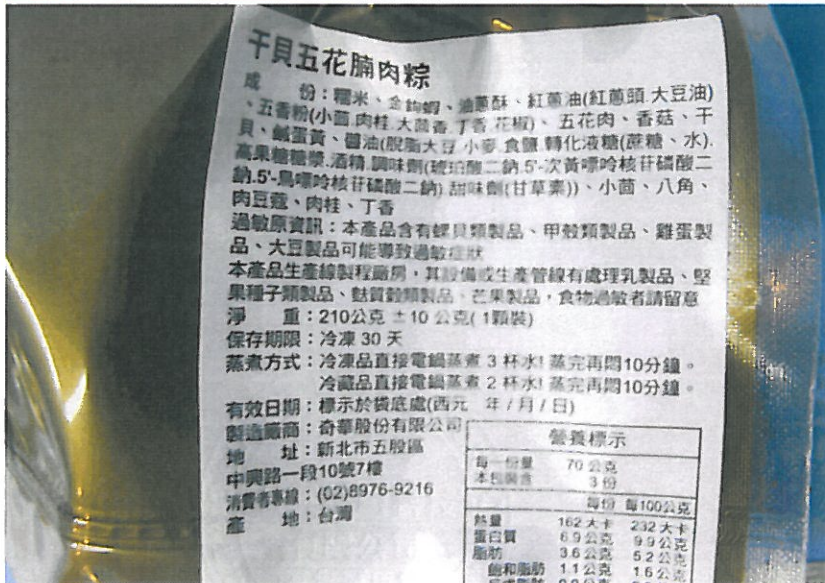 干貝五花腩肉粽
成 份：糯米、金鉤蝦、油蔥酥、紅蔥油(紅蔥頭.大豆油)
、五香粉(小茴.肉桂.大茴香.丁香.花椒)、五花肉、香菇、干
貝、鹹蛋黃、醬油(脫脂大豆.小麥.食鹽.轉化液糖(蔗糖、水).
高果糖糖漿.酒精.調味劑(琥珀酸二鈉.5'-次黃嘌呤核苷磷酸二
鈉.5'-鳥嘌呤核苷磷酸二鈉).甜味劑(甘草素))、小茴、八角、
肉豆蔻、肉桂、丁香
過敏原資訊：本產品含有螺貝類製品、甲殼類製品、雞蛋製
品、大豆製品可能導致過敏症狀
本產品生產線製程廠房，其設備或生產管線有處理乳製品、堅
果種子類製品、麩質穀類製品、芒果製品，食物過敏者請留意
淨 重：210公克 ±10 公克( 1顆裝)
保存期限：冷凍 30 天
蒸煮方式：冷凍品直接電鍋蒸煮 3 杯水! 蒸完再悶10分鐘。
冷藏品直接電鍋蒸煮 2 杯水! 蒸完再悶10分鐘。
有效日期：標示於袋底處(西元 年 / 月 / 日)
製造廠商：奇華股份有限公司
地 址：新北市五股區
中興路一段10號7樓
消費者專線：(02)8976-9216
產 地：台灣
營養標示
每一份量 70 公克
本包裝含 3 份
每份 每100公克
熱量 162 大卡 232 大卡
蛋白質 6.9 公克 9.9 公克
脂肪 3.6 公克 5.2 公克
飽和脂肪 1.1 公克 1.6 公克